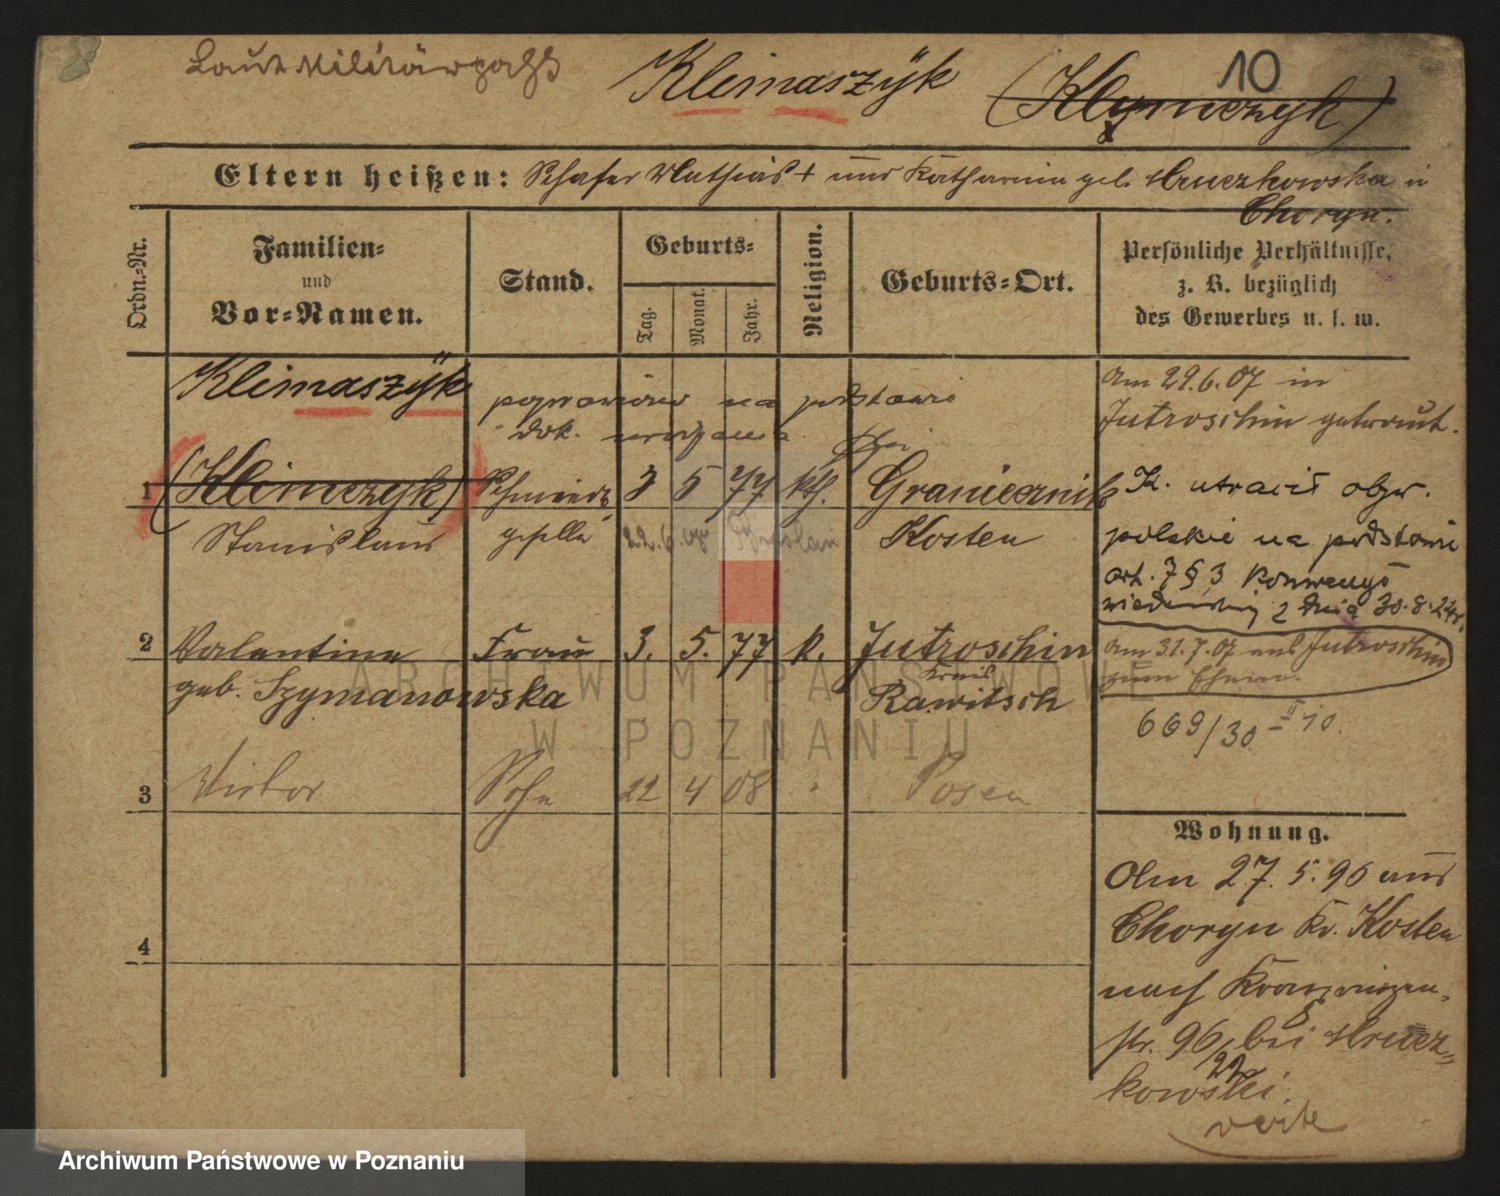 Laut Militärpaß Klimaszÿk (Klymczyk) 10
Eltern heißen: Schafer Mathias + und Katharina geb. Mruczkowska in
Choryn.
Ordn.-Nr. Familien- und Vor-Namen. Stand. Geburts- Tag. Monat. Jahr. Religion. Geburts-Ort. Persönliche Verhältnisse, z. B. bezüglich des Gewerbes u. s. w.
Klimaszÿk
poprawiono na podstawie
dok. urodzenia
1 (Klimczyk) Schmiede 3 5 77 kth. Graniecznik
Stanislaus geselle 22.6.07 Breslau Kosten
2 Valentine Frau 3. 5. 77 k. Jutroschin
geb. Szymanowska Kreis
Rawitsch
3 Victor Sohn 22 4 08 " Posen
4
Am 29.6.07 in
Jutroschin getraut.
K. utracił obyw.
polskie na podstawie
art. 7 § 3 Konwencji
wiedeńskiej z dnia 30.8.24r.
Am 31.7.07 aus Jutroschin
zum Ehem.
669/30 II 10.
Wohnung.
Am 27. 5. 96 aus
Choryn Kr. Kosten
nach Kronprinzen-
str. 96 bei Mrucz-
kowski.
verte
ARCHIWUM PAŃSTWOWE
W POZNANIU
Archiwum Państwowe w Poznaniu